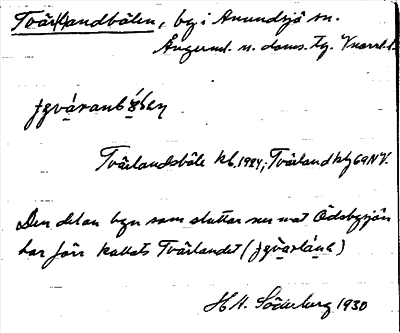 Tvär(l)andbölen, by i Anundsjö sn.
Ångerml. n. doms. tg. Vnorrl. l.
Tvärlandsböle kb. 1924; Tvärland kbg 69 NV.
Den del av byn som sluttar ner mot Ödsbysjön
har förr kallats Tvärlandet
H. H. Söderberg 1930